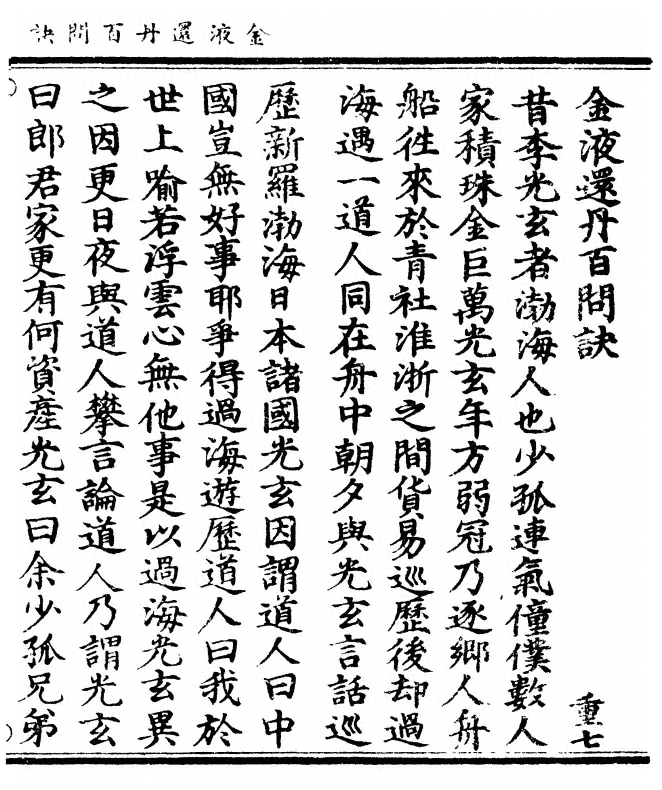 金液還丹百問訣
金液還丹百問訣
重七
昔李光玄者渤海人也少孤連氣僮僕數人
家積珠金巨萬光玄年方弱冠乃逐鄉人舟
船徃來於青社淮浙之間貨易巡歷後却過
海遇一道人同在舟中朝夕與光玄言話巡
歷新羅渤海日本諸國光玄因謂道人曰中
國豈無好事耶爭得過海遊歷道人曰我於
世上喻若浮雲心無他事是以過海光玄異
之因更日夜與道人攀言論道人乃謂光玄
曰郎君家更有何資產光玄曰余少孤兄弟